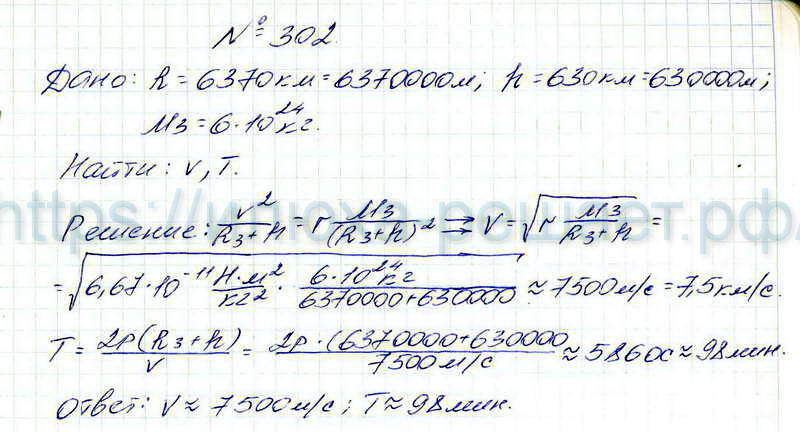 № 302.
Дано: R = 6370км = 6370000м; h = 630км = 630000м;
Mз = 6·10^24 кг.
Найти: v, T.
Решение: v^2/(Rз+h) = г Mз/(Rз+h)^2 ⇒ V = √(г Mз/(Rз+h)) =
= √(6,67·10^-11 Н·м^2/кг^2 · 6·10^24 кг/(6370000+630000)) ≈ 7500м/с = 7,5км/с.
T = 2p(Rз+h)/v = 2p·(6370000+630000/7500м/с ≈ 5860с ≈ 98мин.
Ответ: V ≈ 7500м/с; T ≈ 98мин.